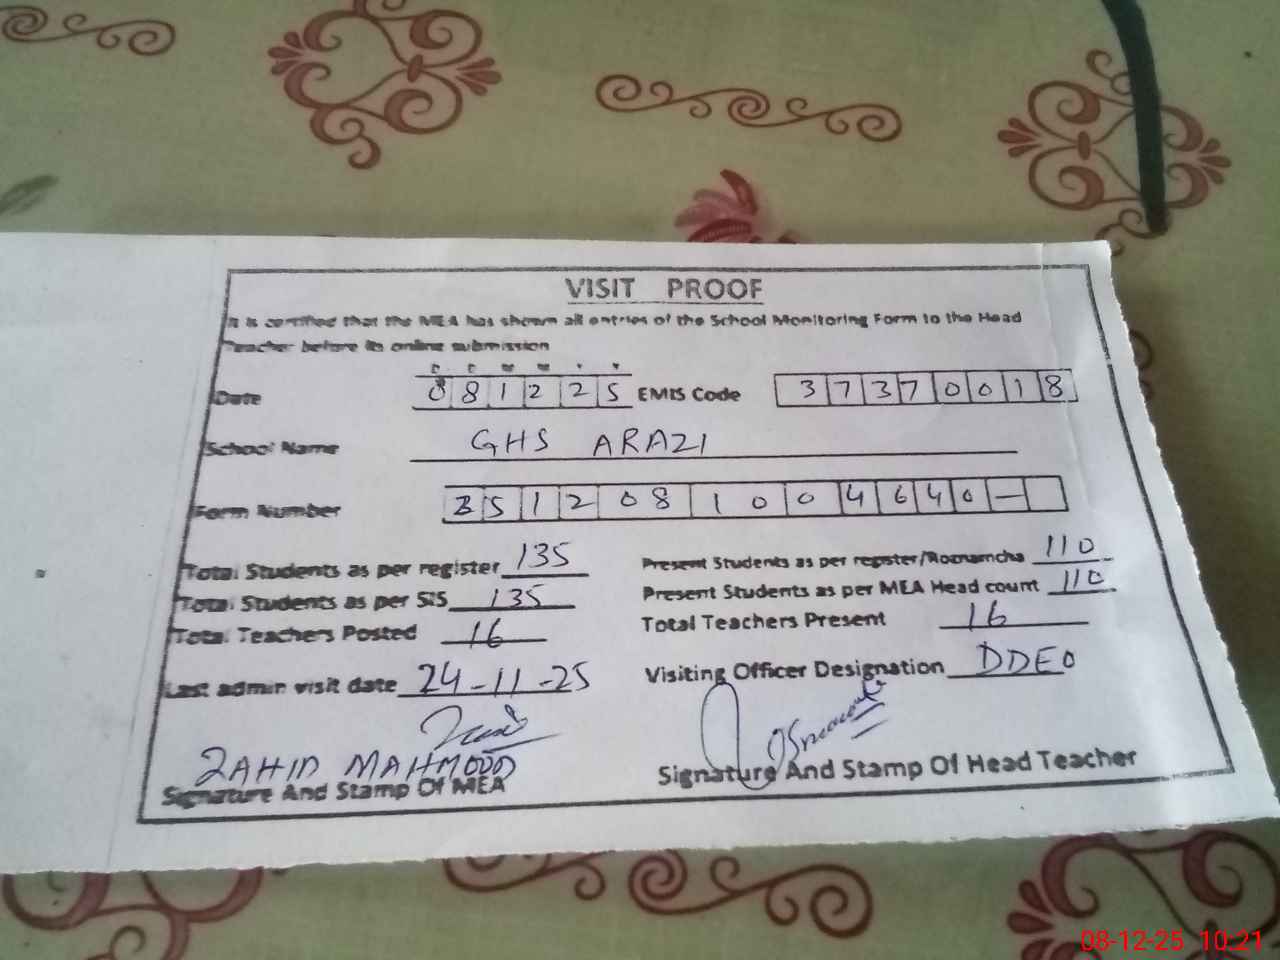 VISIT PROOF
It is certified that the MEA has shown all entries of the School Monitoring Form to the Head
Teacher before its online submission
D D M M Y Y
Date 081225 EMIS Code 37370018
School Name GHS ARAZI
Form Number 2512081004640-
Total Students as per register 135 Present Students as per register/Roznamcha 110
Total Students as per SIS 135 Present Students as per MEA Head count 110
Total Teachers Posted 16 Total Teachers Present 16
Last admin visit date 24-11-25 Visiting Officer Designation DDEO
ZAHID MAHMOOD
Signature And Stamp Of MEA Signature And Stamp Of Head Teacher
08-12-25 10:21